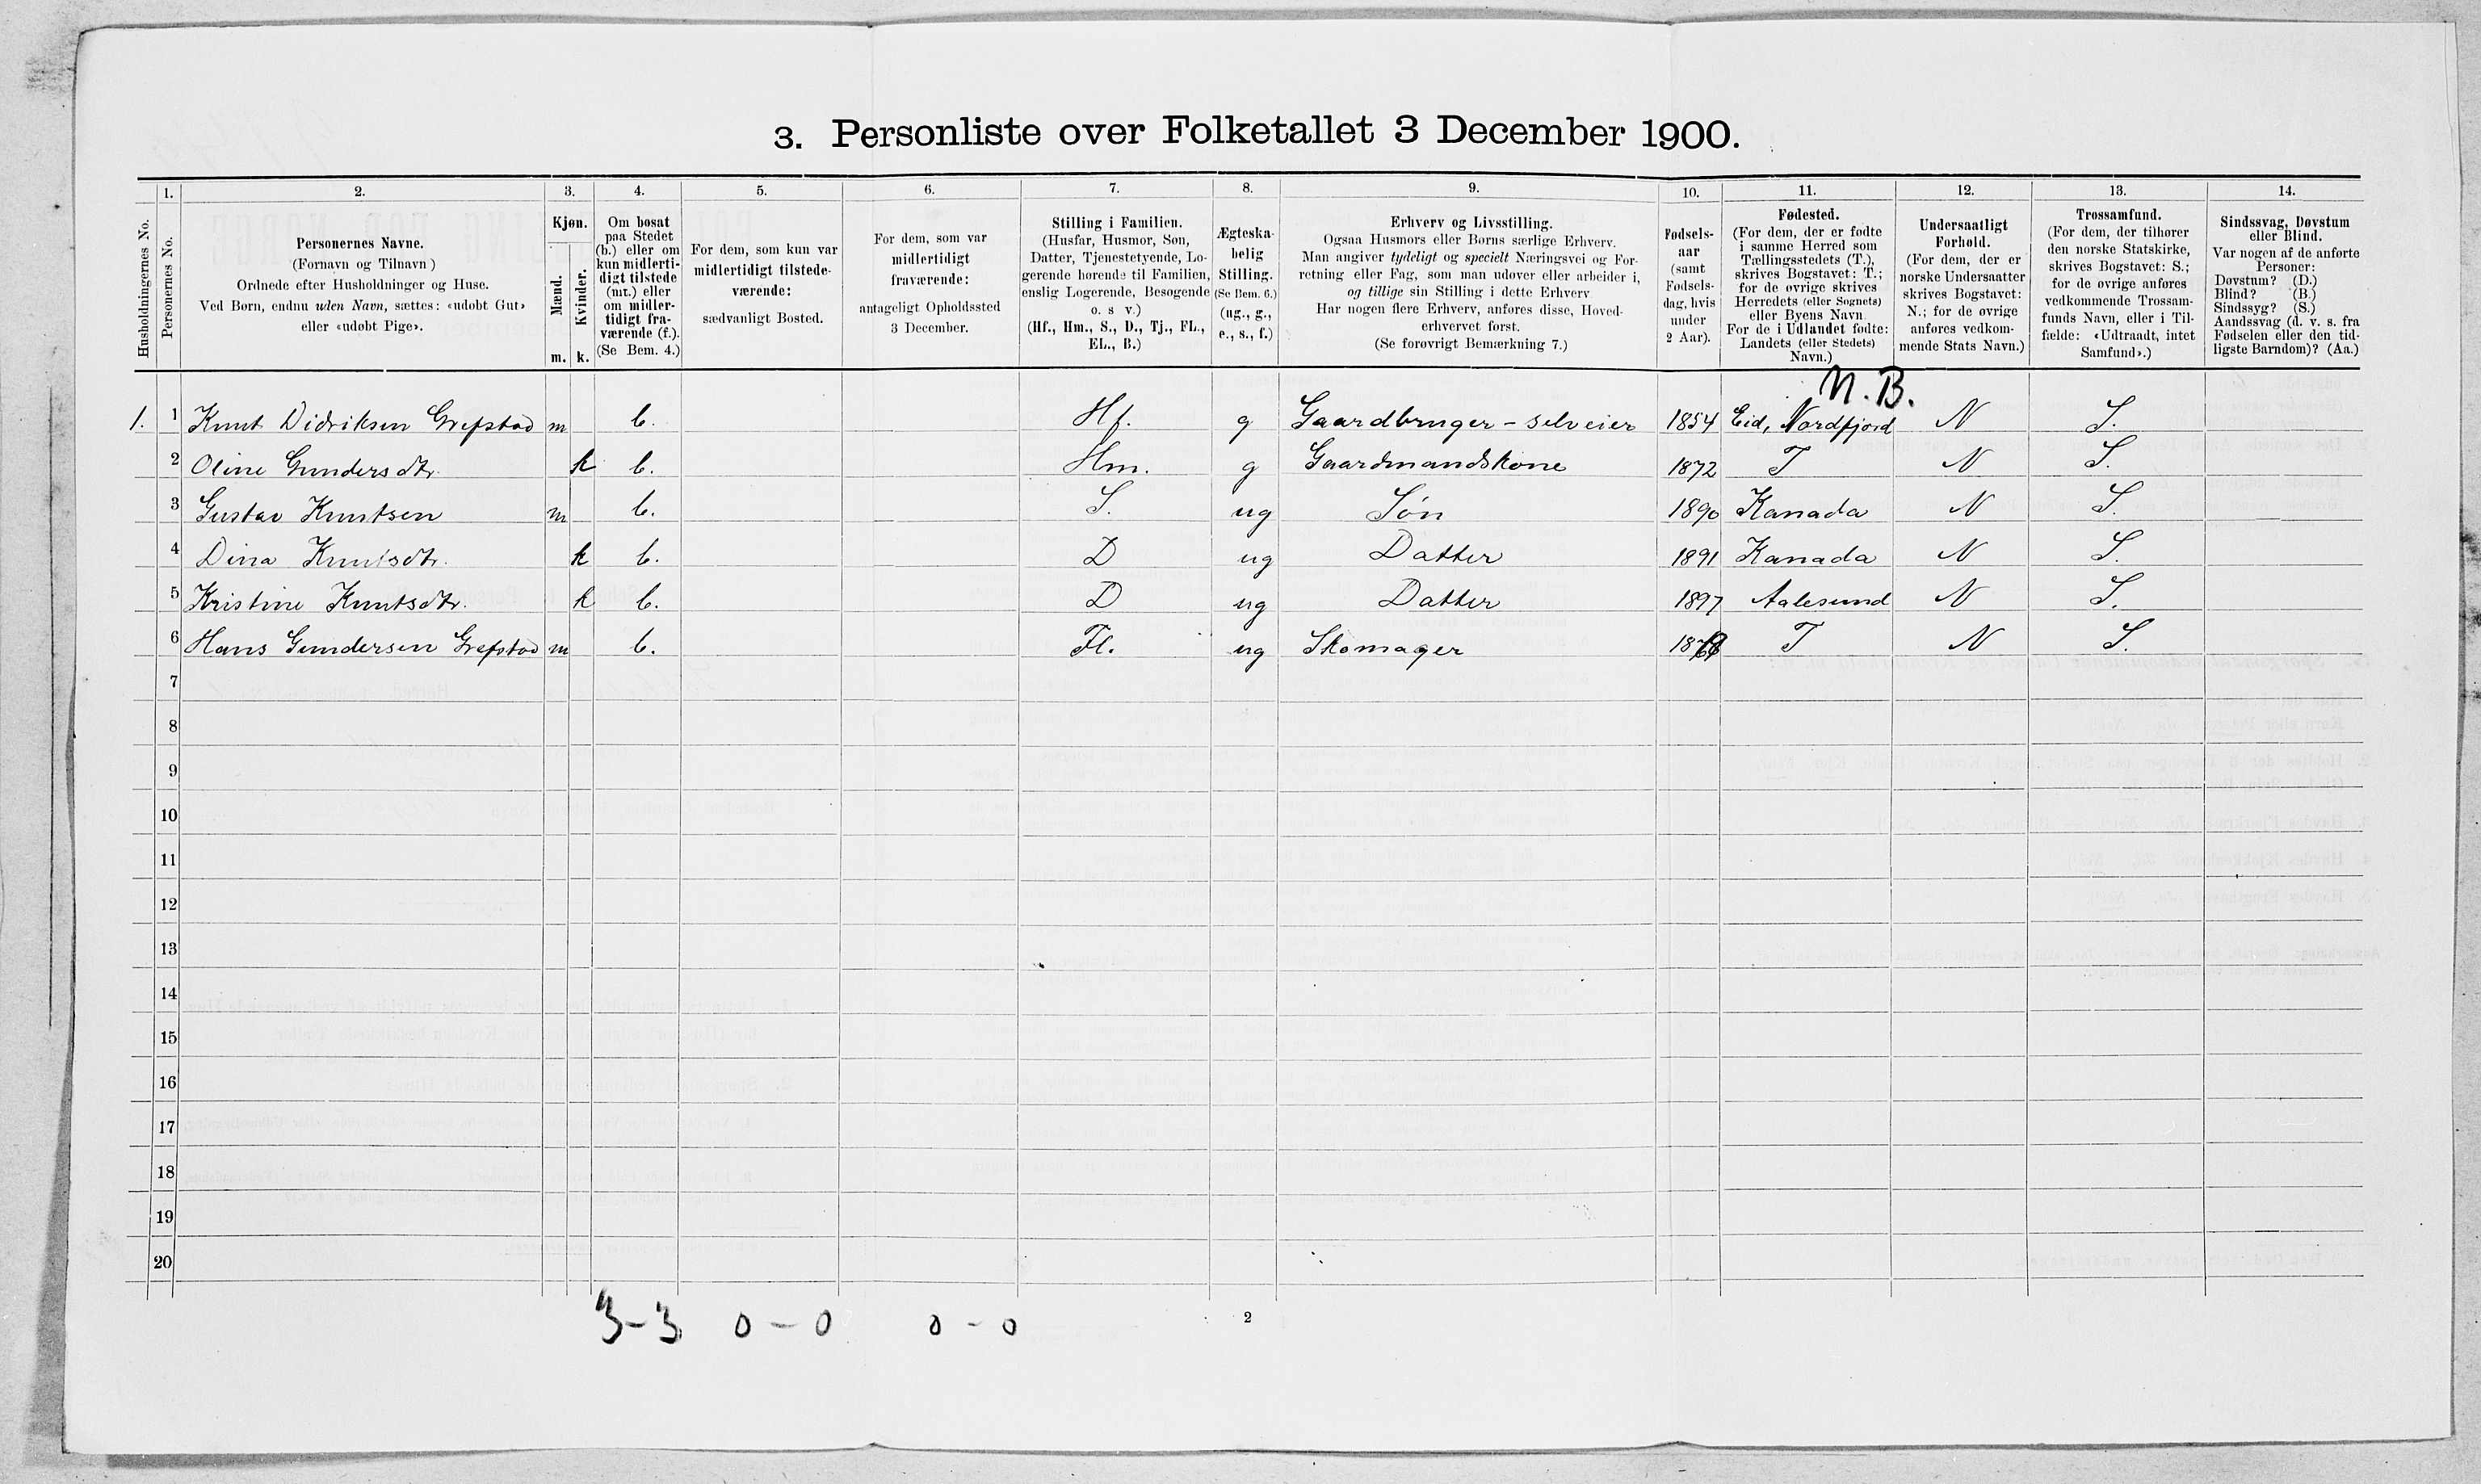 3. Personliste over Folketallet 3 December 1900.
1. 2. 3. 4. 5. 6. 7. 8. 9. 10. 11. 12. 13. 14.
Husholdningernes No.
Personernes No.
Personernes Navne.
(Fornavn og Tilnavn)
Ordnede efter Husholdninger og Huse.
Ved Børn, endnu uden Navn, sættes: «udøbt Gut»
eller «udøbt Pige».
Kjøn.
Mænd.
Kvinder.
m. k.
Om bosat
paa Stedet
(b.) eller om
kun midlerti-
digt tilstede
(mt.) eller
om midler-
tidigt fra-
værende (f.).
(Se Bem. 4.)
For dem, som kun var
midlertidigt tilstede-
værende:
sædvanligt Bosted.
For dem, som var
midlertidigt
fraværende:
antageligt Opholdssted
3 December.
Stilling i Familien.
(Husfar, Husmor, Søn,
Datter, Tjenestetyende, Lo-
gerende hørende til Familien,
enslig Logerende, Besøgende
o. s v.)
(Hf., Hm., S., D., Tj., FL.,
EL., B.)
Ægteska-
belig
Stilling.
(Se Bem. 6.)
(ug., g.,
e., s., f.)
Erhverv og Livsstilling.
Ogsaa Husmors eller Børns særlige Erhverv.
Man angiver tydeligt og specielt Næringsvei og For-
retning eller Fag, som man udover eller arbeider i,
og tillige sin Stilling i dette Erhverv
Har nogen flere Erhverv, anføres disse, Hoved-
erhvervet først.
(Se forøvrigt Bemærkning 7.)
Fødsels-
aar
(samt
Fødsels-
dag, hvis
under
2 Aar).
Fødested.
(For dem, der er fødte
i samme Herred som
Tællingsstedets (T.),
skrives Bogstavet: T.;
for de øvrige skrives
Herredets (eller Sognets)
eller Byens Navn
For de i Udlandet fødte:
Landets (eller Stedets)
Navn.)
Undersaatligt
Forhold.
(For dem, der er
norske Undersaatter
skrives Bogstavet:
N.; for de øvrige
anføres vedkom-
mende Stats Navn.)
Trossamfund.
(For dem, der tilhører
den norske Statskirke,
skrives Bogstavet: S.;
for de øvrige anføres
vedkommende Trossam-
funds Navn, eller i Til-
fælde: «Udtraadt, intet
Samfund».)
Sindssvag, Døvstum
eller Blind.
Var nogen af de anførte
Personer:
Døvstum? (D.)
Blind? (B.)
Sindssyg? (S.)
Aandssvag (d. v. s. fra
Fødselen eller den tid-
ligste Barndom)? (Aa.)
N.B.
1. 1 Knut Didriksen Grefstad m b. Hf. g Gaardbruger - selveier 1854 Eid, Nordfjord N S.
2 Oline Gundersdtr. k b. Hm. g Gaardmandskone 1872 T N S.
3 Gustav Knutsen m b. S. ug Søn 1890 Kanada N S.
4 Dina Knutsdtr. k b. D ug Datter 1891 Kanada N S.
5 Kristine Knutsdtr. k b. D ug Datter 1897 Aalesund N S.
6 Hans Gundersen Grefstad m b. Fl. ug Skomager T N S.
7
8
9
10
11
12
13
14
15
16
17
18
19
20
3-3 0-0 0-0
2